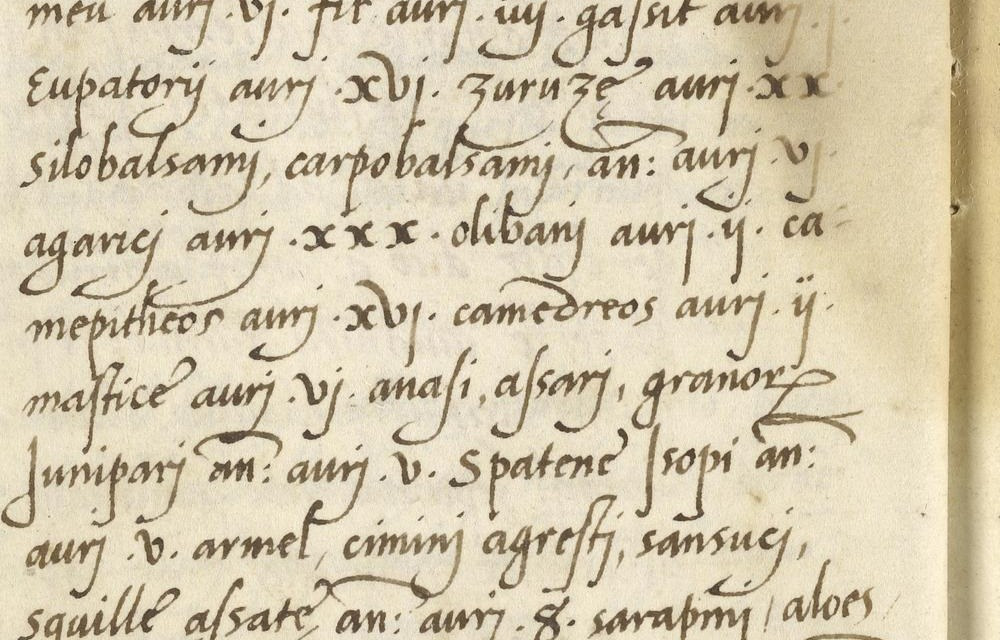 meu aurj .vj. fit aurj .iiij. gassit aurj .i.
Eupatorij aurj .xvj. zuruzę aurj .xx.
silobalsamj, carpobalsamj, an: aurj .vj.
agaricj aurj .xxx. olibanj aurj .ij. ca-
mepitheos aurj .xvj. camedreos aurj .ij.
masticę aurj .vj. anasi, assarj, granoꝝ
Juniparj an: aurj .v. Spatenę Isopi an:
aurj .v. armel, ciminj agrestj, sansucj,
squillę assatę an: aurj .8. sarapinj, aloes